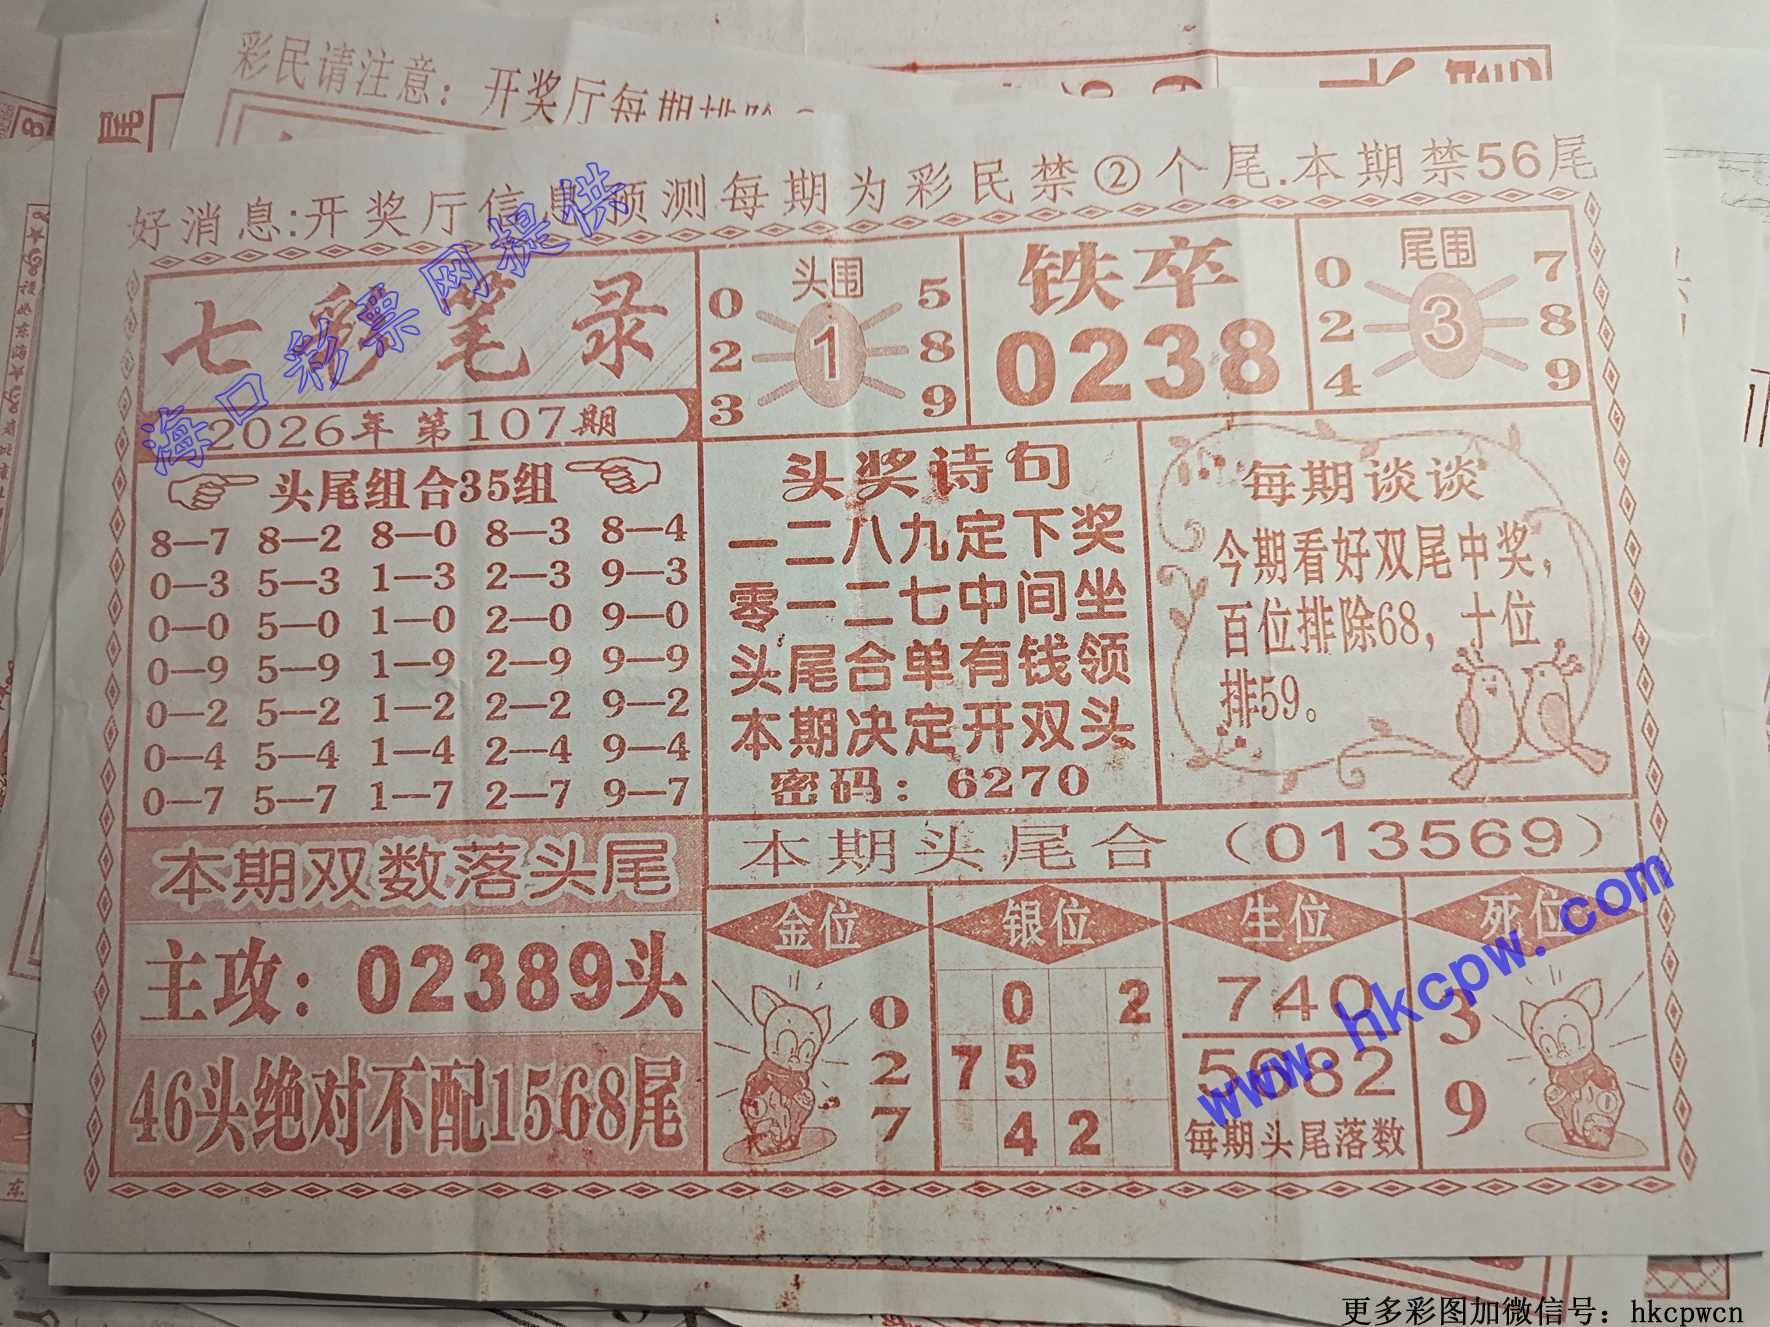 彩民请注意：开奖厅每期排除
尾
好消息:开奖厅信息预测每期为彩民禁②个尾.本期禁56尾
七彩笔录
2026年 第107期
头围
0 5
2 1 8
3 9
铁卒
0238
尾围
0 7
2 3 8
4 9
头尾组合35组
8—7 8—2 8—0 8—3 8—4
0—3 5—3 1—3 2—3 9—3
0—0 5—0 1—0 2—0 9—0
0—9 5—9 1—9 2—9 9—9
0—2 5—2 1—2 2—2 9—2
0—4 5—4 1—4 2—4 9—4
0—7 5—7 1—7 2—7 9—7
头奖诗句
一二八九定下奖
零一二七中间坐
头尾合单有钱领
本期决定开双头
密码：6270
每期谈谈
今期看好双尾中奖，
百位排除68，十位
排59。
本期双数落头尾
主攻：02389头
46头绝对不配1568尾
本期头尾合（013569）
金位
0
2
7
银位
0 2
7 5
4 2
生位
740
5682
每期头尾落数
死位
3
9
海口彩票网提供
www.hkcpw.com
更多彩图加微信号：hkcpwcn